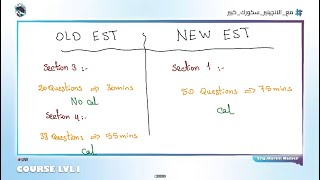 مع_الانجينير_سكورك_كبير
OLD EST
NEW EST
Section 3 :-
20 Questions ⇒ 30mins
No Cal
Section 4 :-
38 Questions ⇒ 55 mins
Cal
Section 1 :-
50 Questions ⇒ 75 mins
Cal
COURSE LVL1